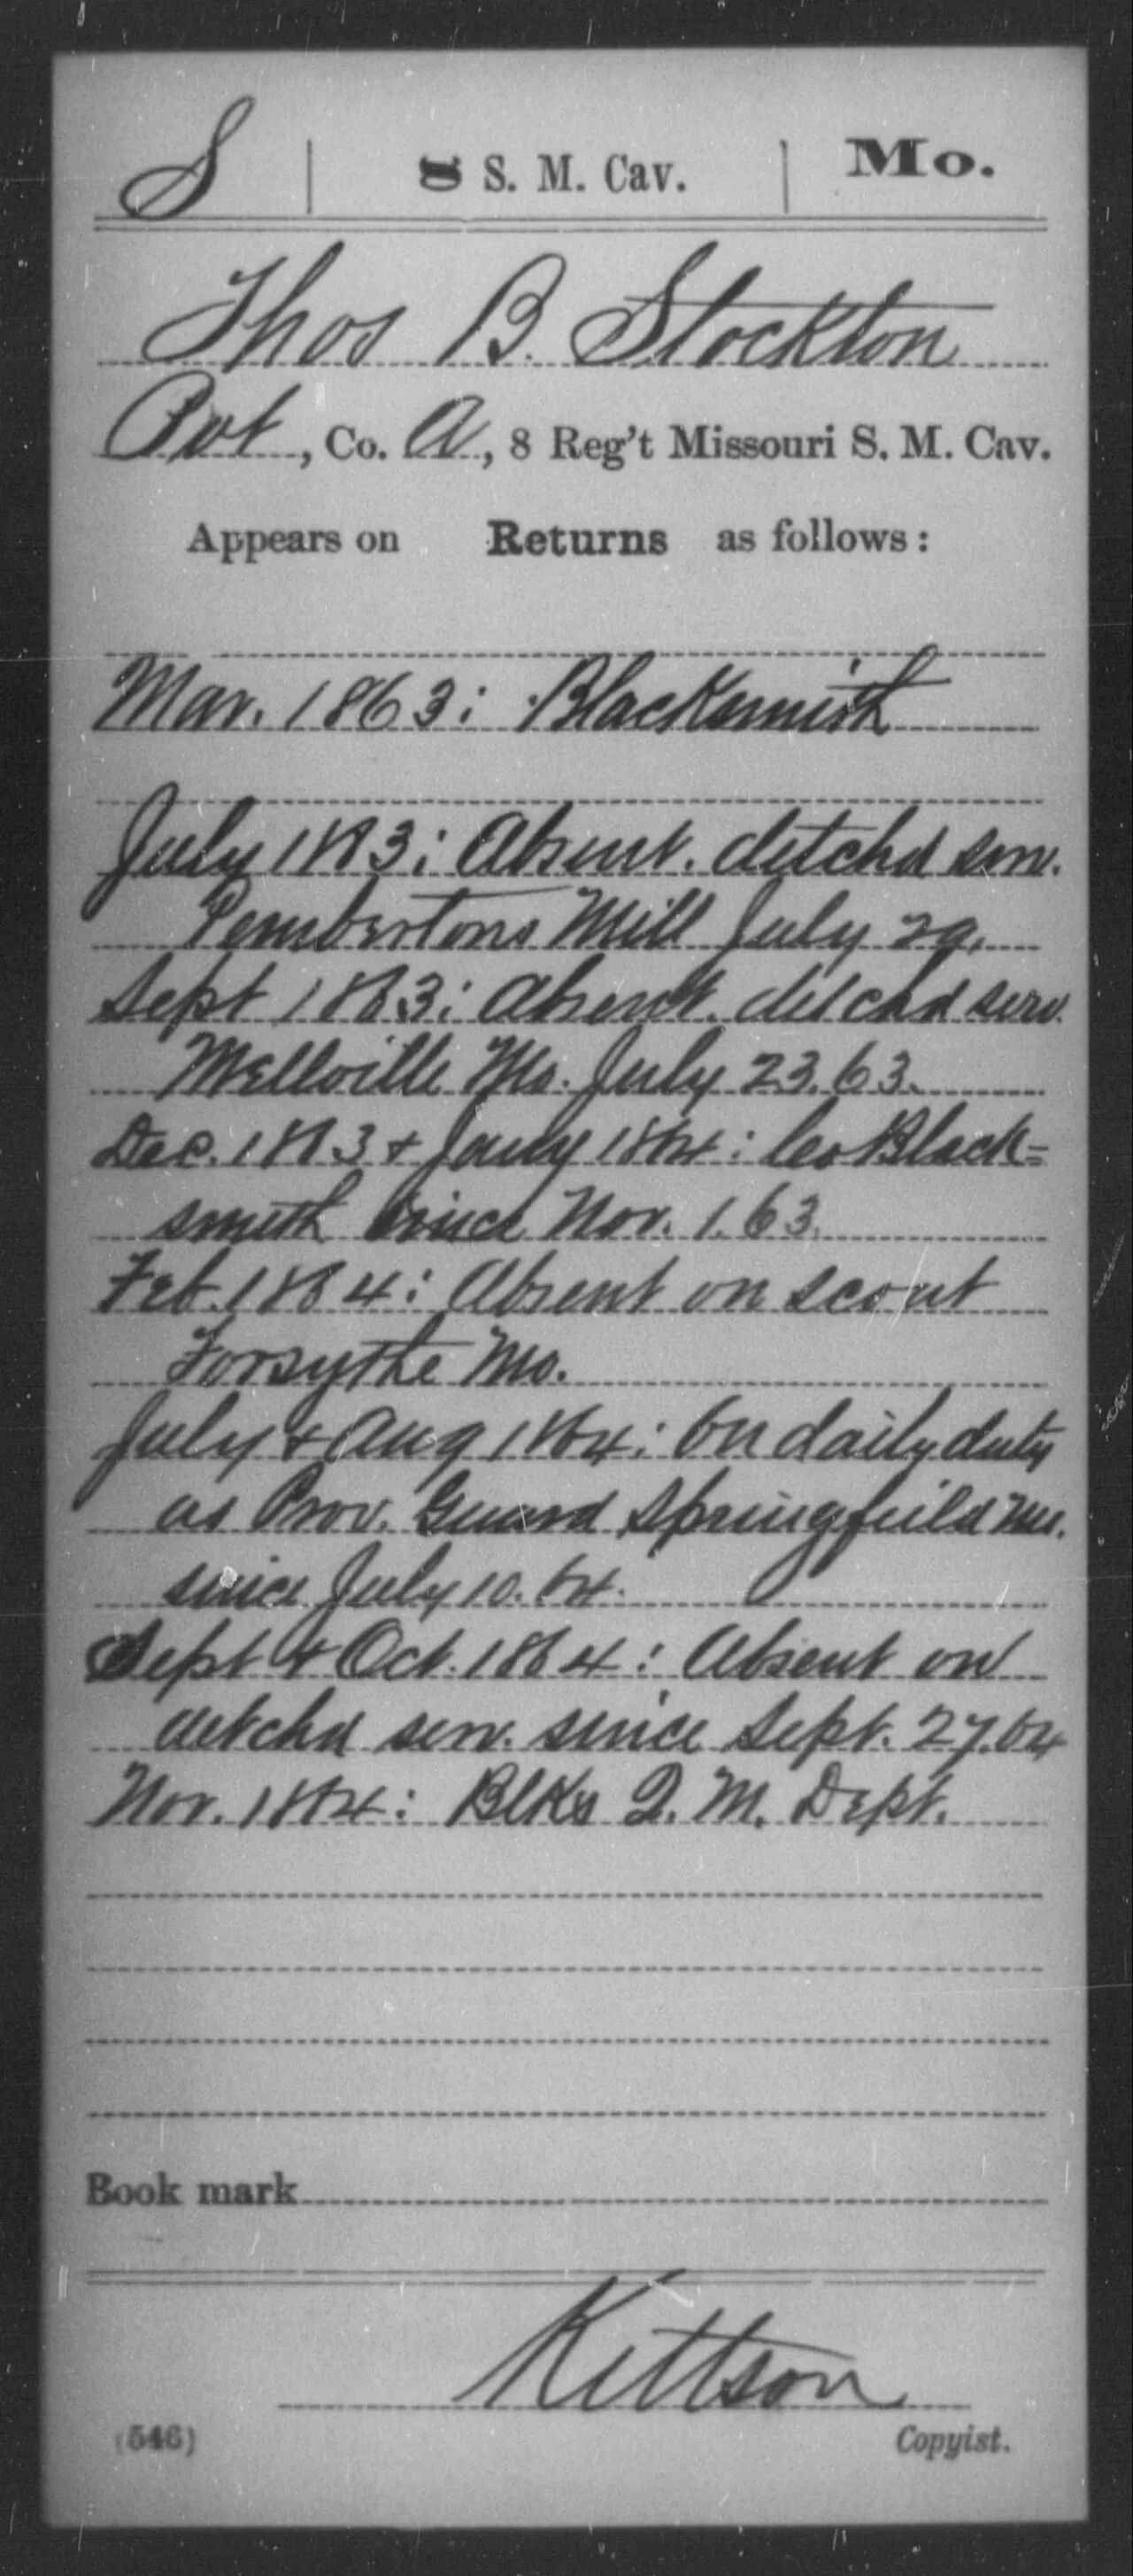 S | 8 S. M. Cav. | Mo.
Thos B. Stockton
Pvt, Co. A, 8 Reg't Missouri S. M. Cav.
Appears on Returns as follows:
Mar. 1863: Blacksmith
July 1863: Absent. detchd serv.
Pembertons Mill July 29.
Sept 1863: Absent. detchd serv.
Mellville Mo. July 23. 63.
Dec. 1863 + Jany 1864: Co Black-
smith since Nov. 1. 63.
Feb. 1864: Absent on scout
Forsythe Mo.
July + Aug 1864: On daily duty
as Prov. Guard Springfield Mo.
since July 10. 64.
Sept + Oct. 1864: Absent on
detchd serv. since Sept. 27. 64
Nov. 1864: Blks Q. M. Dept.
Book mark
Kittson
(546) Copyist.